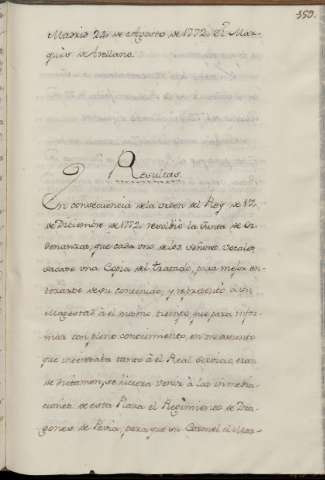 359.
Madrid 22 de Agosto de 1772. El Mar-
quès de Arellano.
Resultas.
En consecuencia de la orden del Rey de 17.
de Diciembre de 1772. resolviò la Junta de Or-
denanzas, que cada uno de los Señores Vocales
sacase una Copia del tratado, para mejor en-
terarse de su contenido, y representò à su
Magestad à el mismo tiempo, que para infor-
mar con pleno conocimiento, en un asunto
que interesaba tanto à el Real servicio, eran
de dictamen, se hiciera venir à las inmedia-
ciones de esta Plaza el Regimiento de Dra-
gones de Pavia, para que su Coronel el Mar-